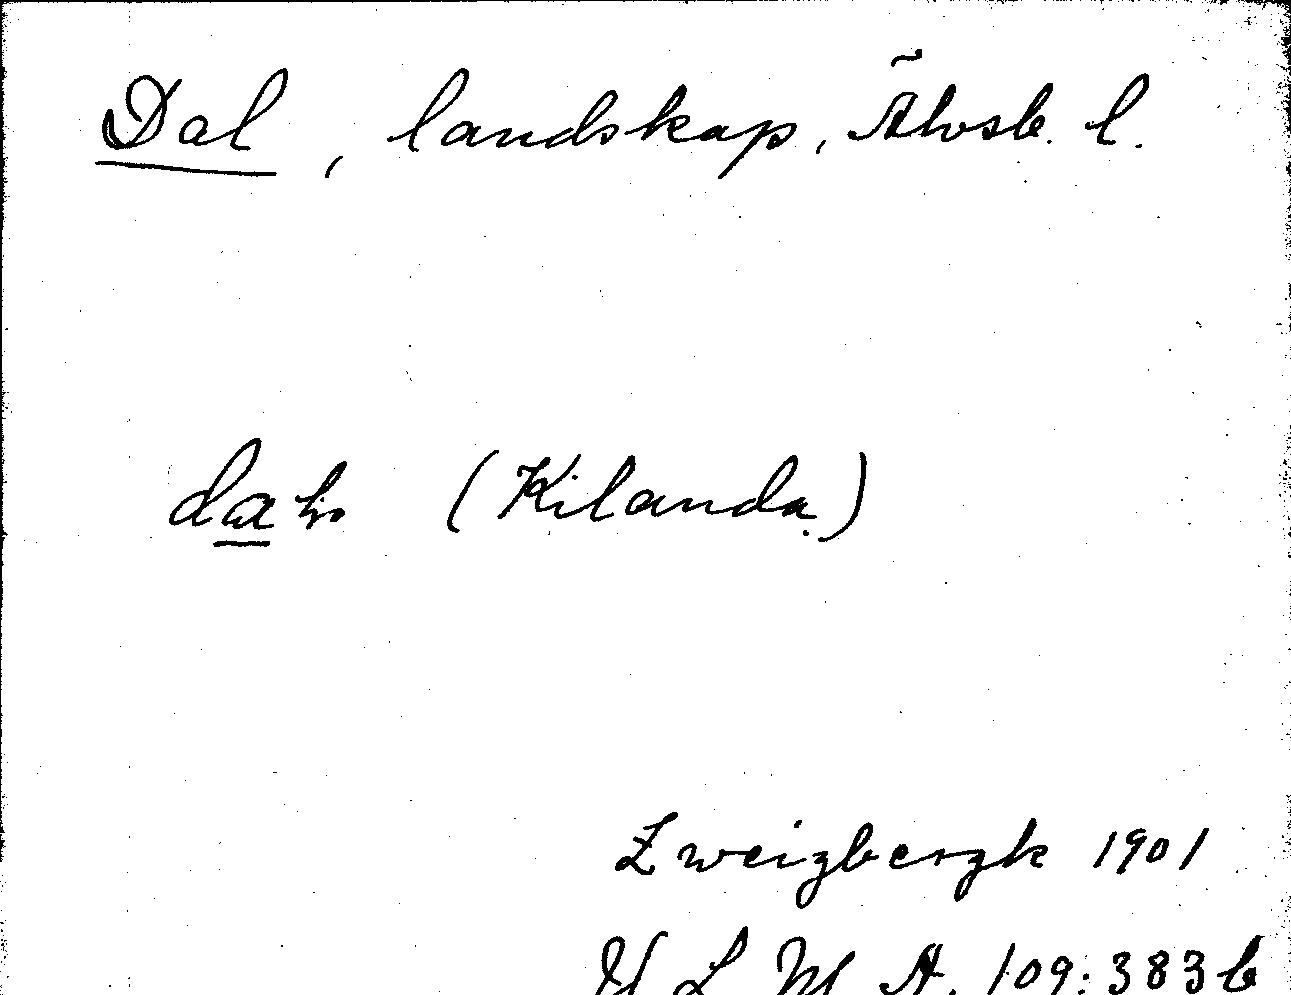 Dal, landskap, Älvsb. l.
(Kilanda.)
Zweigbergk 1901
ULMA. 109:383b